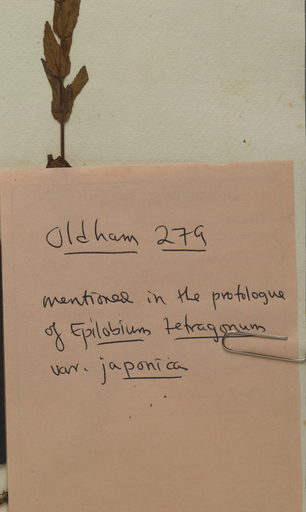 Oldham 279
mentioned in the protologue
of Epilobium tetragonum
var. japonica